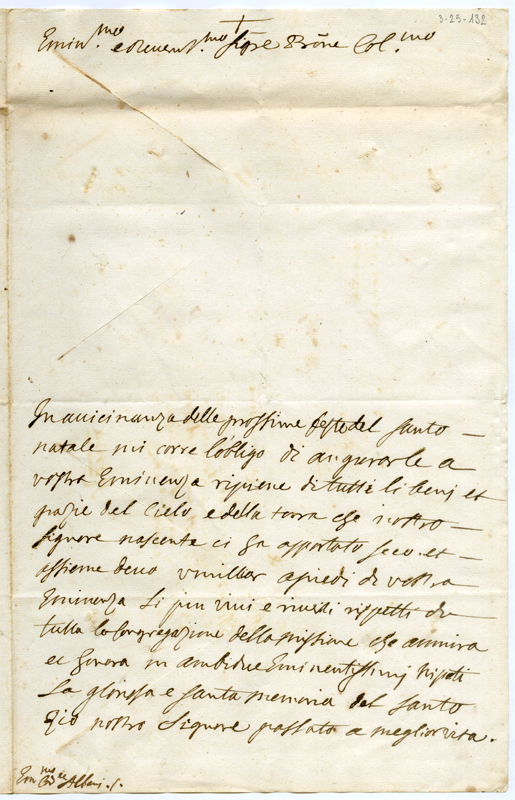 3-25-132
Emin.mo e Reverend.mo Sig.re Prone Col.mo
In auicinanza delle prossime feste del santo
natale mi corre l'obligo di augurarle a
vostra Eminenza ripiene di tutti li beni et
grazie del Cielo e della terra che nostro
signore nascente ci ha apportato seco et
assieme deuo umiliar a piedi di vostra
Eminenza li piu viui e rispetti di
tutta la Congregazione della missione che ammira
et honora in ambidue Eminentissimi Nipoti
la gloriosa e santa memoria del santo
zio nostro signore passato a meglior vita.
Em.mo Albani. s.